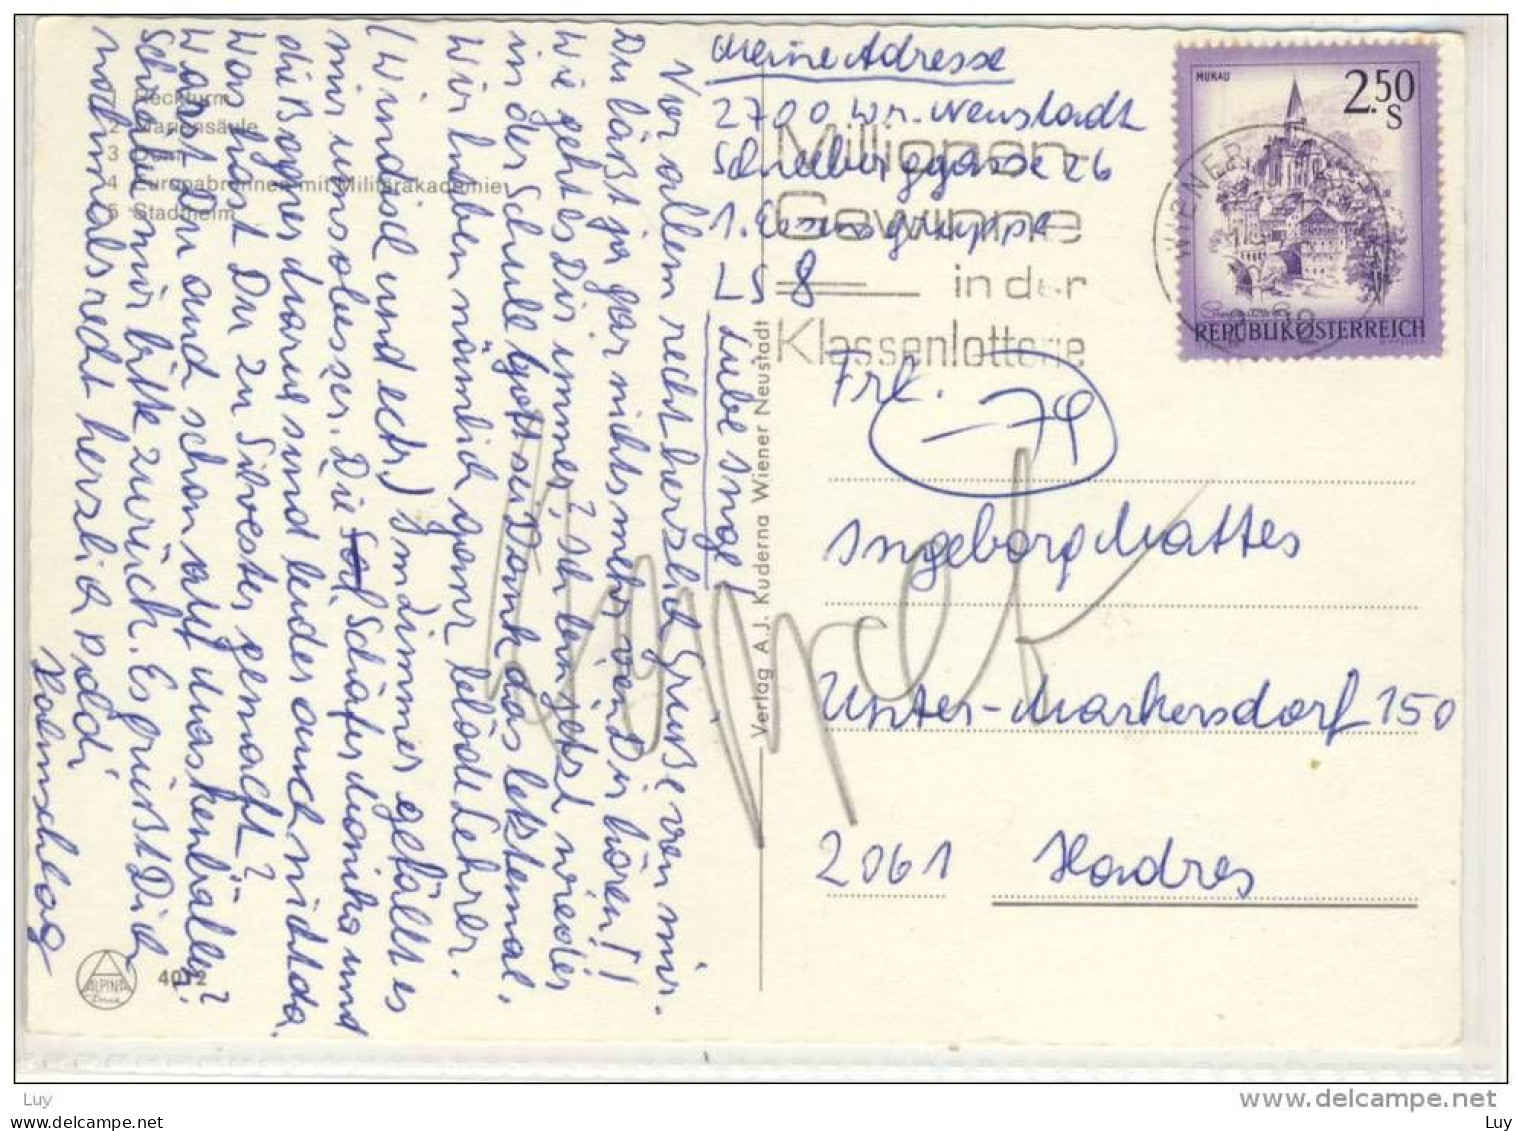 Meine Adresse
2700 Wr. Neustadt
Schneeberggasse 26
1. Essensgruppe
LS 8
Liebe Inge!
Vor allem recht herzlich Grüße von mir.
Du läßt ja gar nichts mehr von Dir hören!!
Wie geht es Dir immer? Ich bin jetzt wieder
in der Schule Gott sei Dank das letztemal.
Wir haben nämlich ganz blöde Lehrer.
(Windisch und ect.) Im Zimmer gefällt es
mir umso besser. Die Schäfer Monika und
die Bogner sind leider auch nicht da.
Was hast Du zu Silvester gemacht?
Warst Du auch schon auf Maskenbällen?
Schreibe mir bitte zurück. Es grüßt Dich
nochmals recht herzlich
MURAU
2.50
S
REPUBLIK ÖSTERREICH
WIENER
Millionen-
Gewinne
in der
Klassenlotterie
Frl.
-74
Ingeborg Mattes
Unter-Markersdorf 150
2061 Hadres
1 Reckturm
2 Mariensäule
3 Dom
4 Europabrunnen mit Militärakademie
5 Stadtheim
ALPINA
4012
Verlag A.J. Kuderna Wiener Neustadt
Luy
www.delcampe.net
Luy
Luy